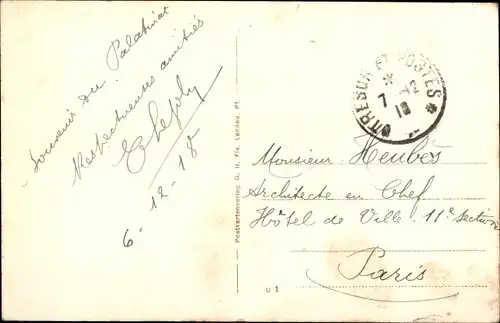 Souvenir du Palatinat
Respectueuses amitiés
6 - 12 - 18
Postkartenverlag G. H. Fix, Landau, Pf.
u 1
TRESOR ET POSTES
7 12
18
Monsieur Heubès
Architecte en Chef
Hôtel de Ville - 11e Section
Paris